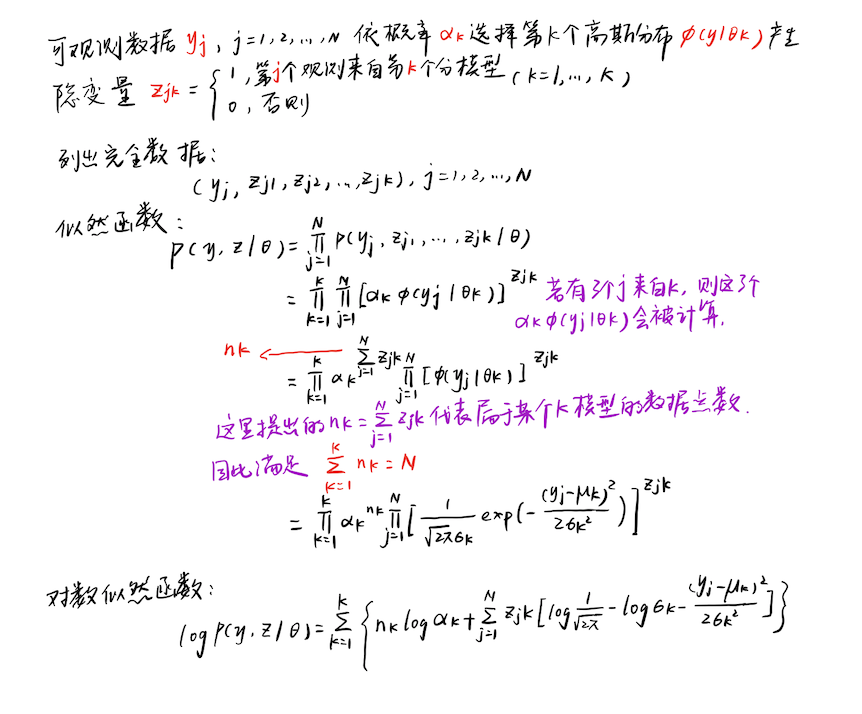 可观测数据 yj, j=1,2,...,N 依概率 αk 选择第k个高斯分布 ϕ(y|θk) 产生
隐变量 zjk = { 1, 第j个观测来自第k个分模型 (k=1,...,K)
0, 否则
列出完全数据:
(yj, zj1, zj2, ..., zjk), j=1,2,...,N
似然函数:
P(y, z|θ) = ∏_{j=1}^{N} P(yj, zj1, ..., zjk|θ)
= ∏_{k=1}^{K} ∏_{j=1}^{N} [αk ϕ(yj|θk)]^{zjk} 若有3个j来自k, 则这3个
αk ϕ(yj|θk) 会被计算.
nk ← = ∏_{k=1}^{K} αk^{∑_{j=1}^{N} zjk} ∏_{j=1}^{N} [ϕ(yj|θk)]^{zjk}
这里提出的 nk = ∑_{j=1}^{N} zjk 代表属于某个k模型的数据点数.
因此满足 ∑_{k=1}^{K} nk = N
= ∏_{k=1}^{K} αk^{nk} ∏_{j=1}^{N} [ 1/(√2π σk) exp(-(yj-μk)^2/2σk^2) ]^{zjk}
对数似然函数:
log P(y, z|θ) = ∑_{k=1}^{K} { nk log αk + ∑_{j=1}^{N} zjk [log 1/√2π - log σk - (yj-μk)^2/2σk^2] }